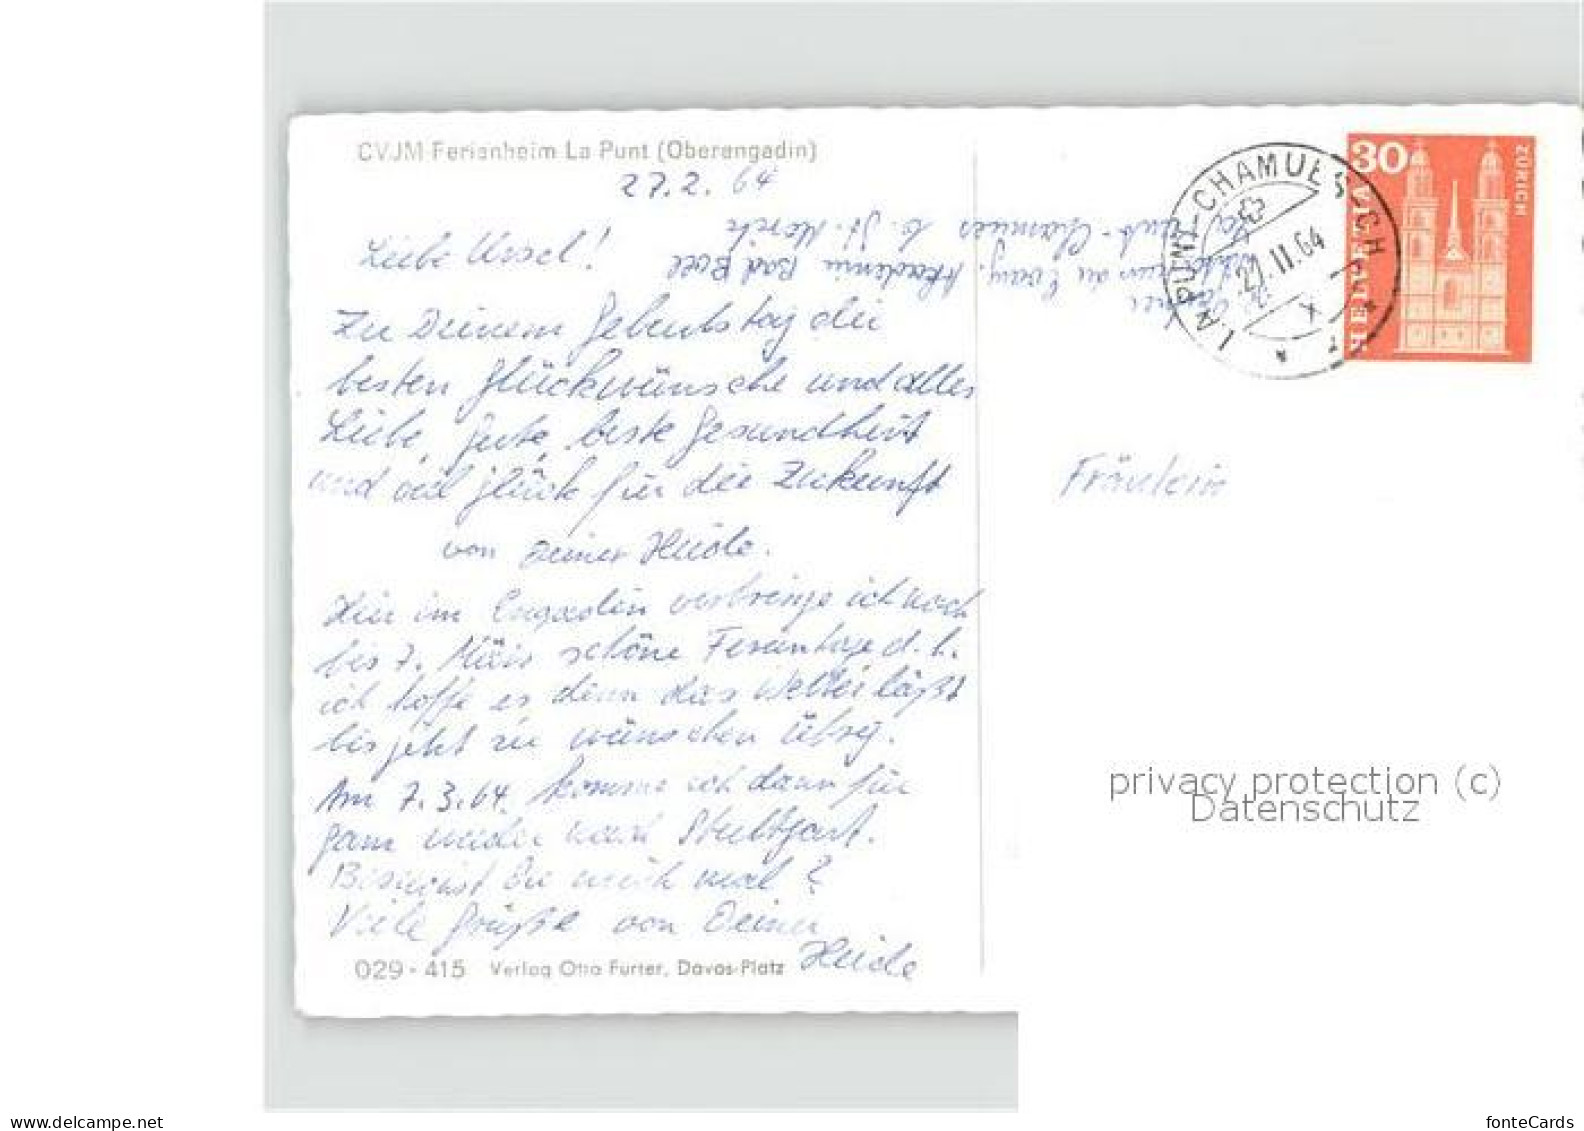 CVJM-Ferienheim La Punt (Oberengadin)
27.2.64
Liebe Ursel!
Zu Deinem Geburtstag die
besten Glückwünsche und alles
Liebe, Gute, beste Gesundheit
und viel Glück für die Zukunft
von Deiner Heide.
Hier im Engadin verbringe ich noch
bis 7. März schöne Ferientage d.h.
ich hoffe es denn das Wetter läßt
bis jetzt zu wünschen übrig.
Am 7.3.64. komme ich dann für
ganz wieder nach Stuttgart.
Besuchst Du mich mal?
Viele Grüße von Deiner
Heide
029-415 Verlag Otto Furter, Davos-Platz
Evang. Akademie Bad Boll
Punt-Chamues b. St. Moritz
LA PUNT-CHAMUES-CH
27.II.64
30
HELVETIA
ZÜRICH
Fräulein
privacy protection (c)
Datenschutz
www.delcampe.net
fonteCards